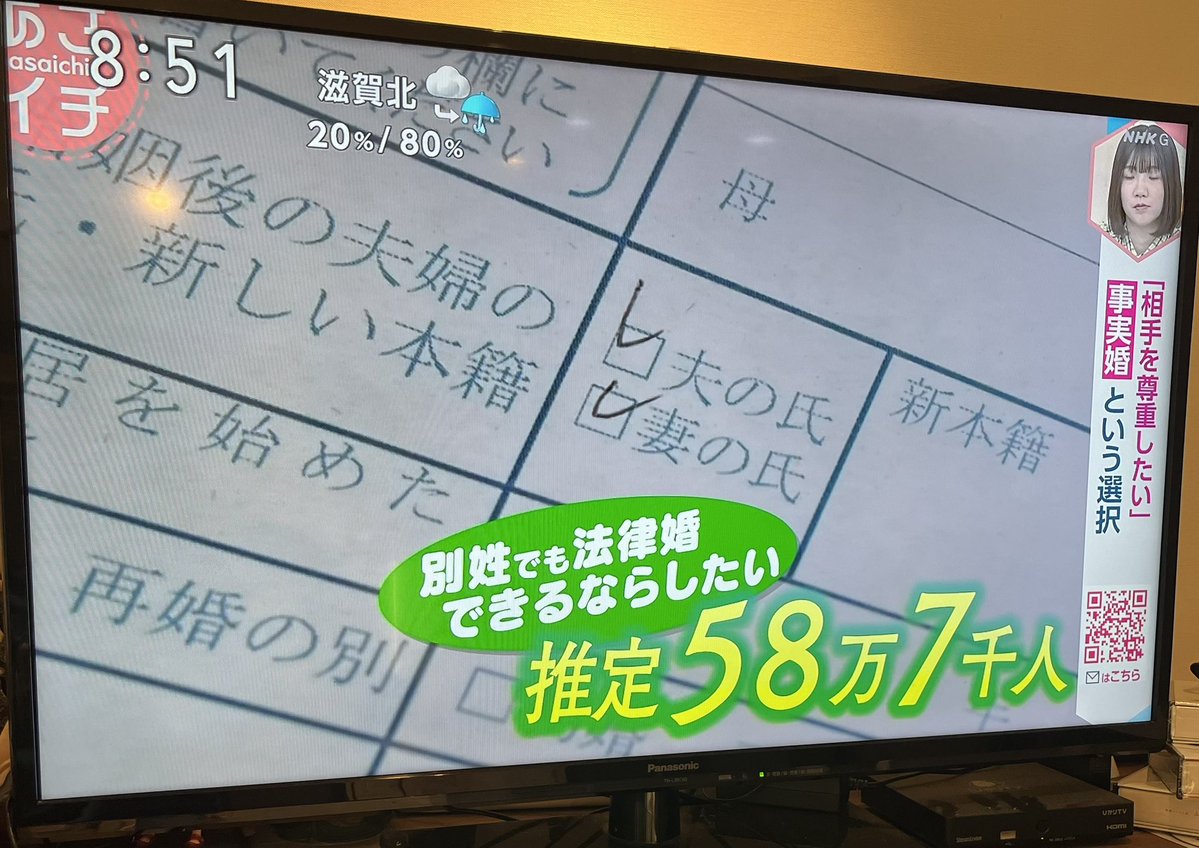 あさ
asaichi
イチ
8:51
滋賀北
20%/80%
NHK G
「相手を尊重したい」
事実婚という選択
はこちら
欄に
い
姻後の夫婦の
・新しい本籍
母
夫の氏
妻の氏
新本籍
居を始めた
再婚の別
別姓でも法律婚
できるならしたい
推定58万7千人
Panasonic
ひかりTV
HDMI